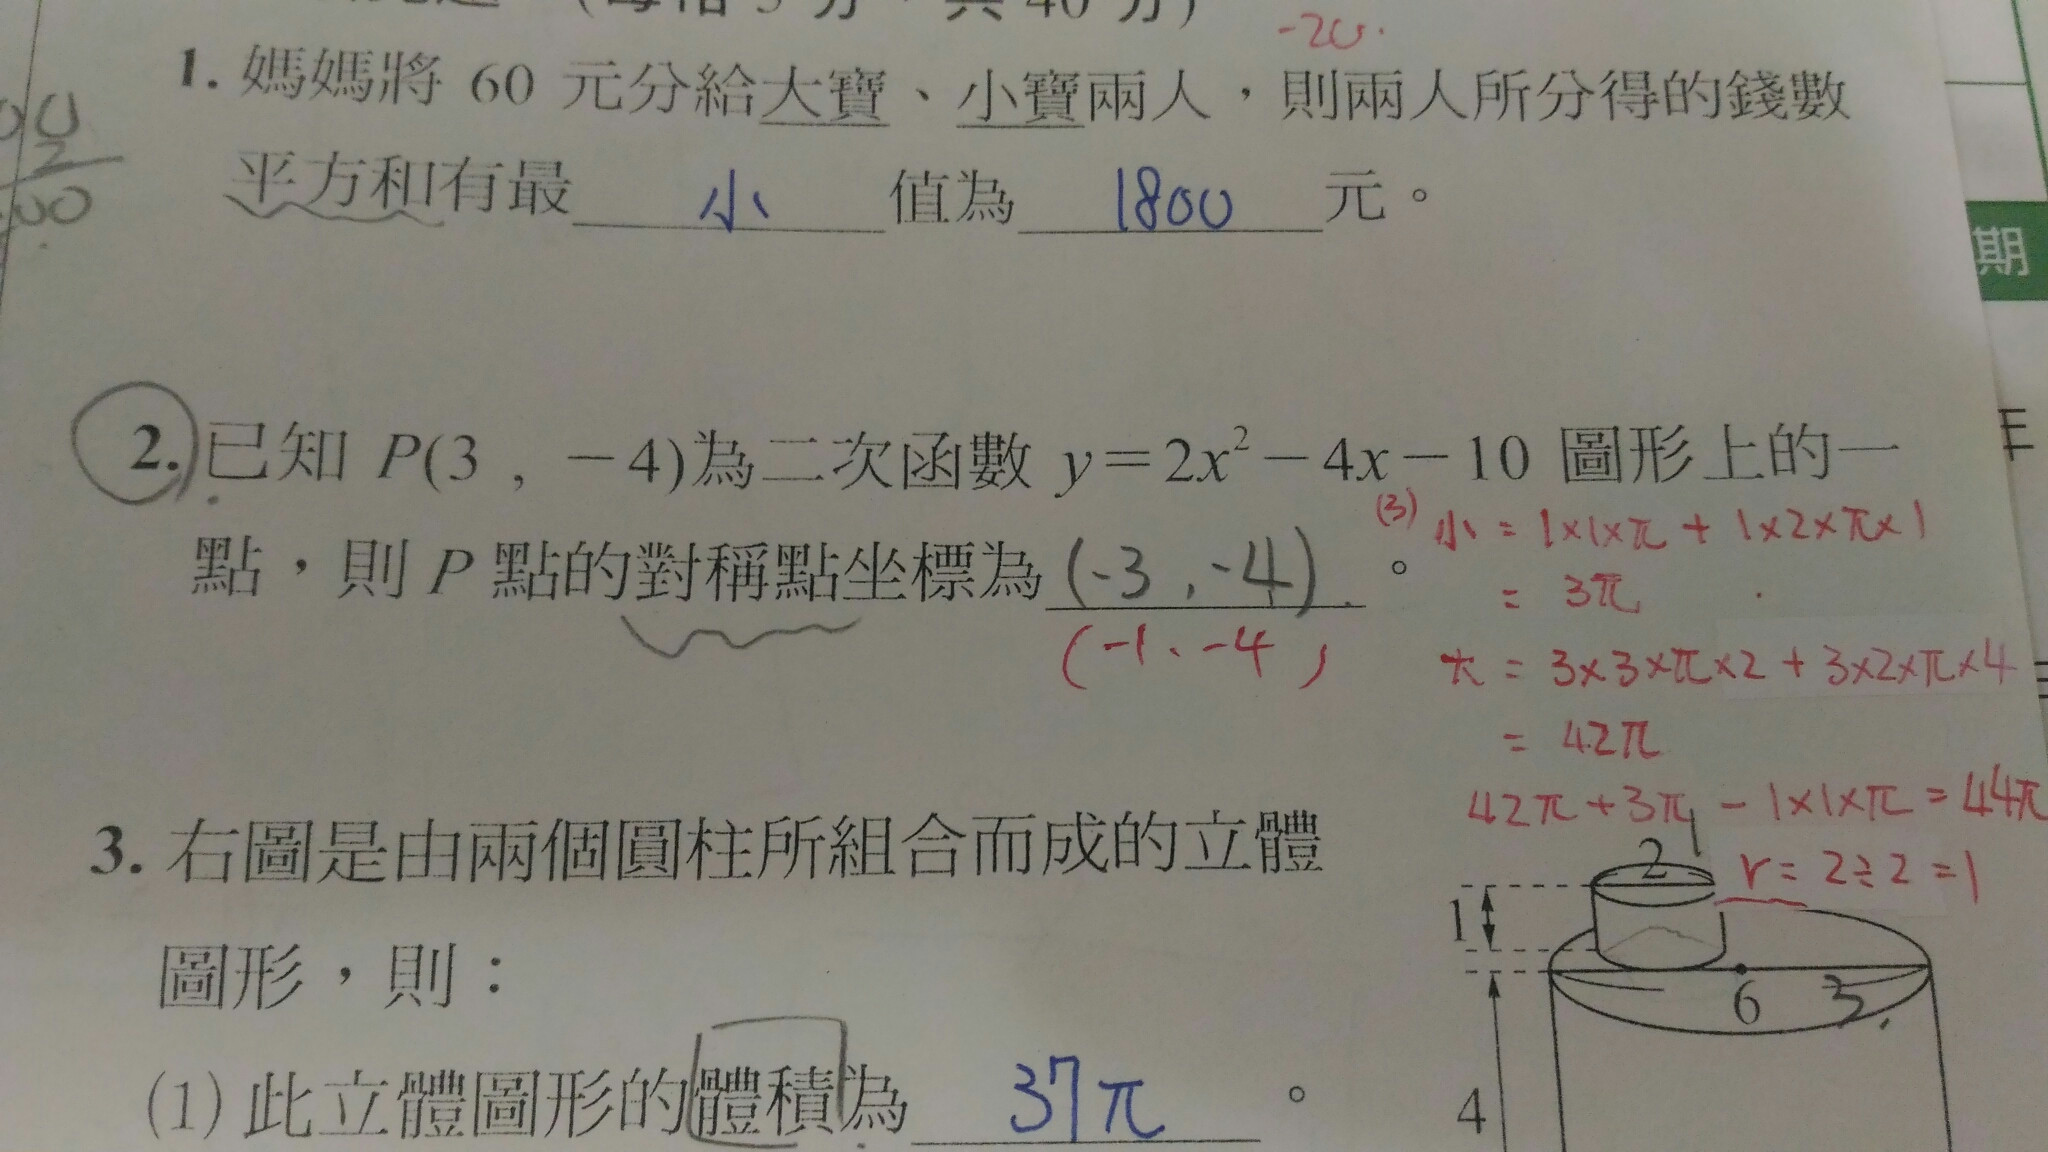 (每格5分，共40分)
-20.
1. 媽媽將 60 元分給大寶、小寶兩人，則兩人所分得的錢數
平方和有最 小 值為 1800 元。
期
2. 已知 P(3 , －4)為二次函數 y＝2x²－4x－10 圖形上的一
點，則 P 點的對稱點坐標為 (-3 , -4) 。
(-1、-4)
(3) 小 = 1×1×π + 1×2×π×1
= 3π
大 = 3×3×π×2 + 3×2×π×4
= 42π
42π + 3π - 1×1×π = 44π
r = 2÷2 = 1
3. 右圖是由兩個圓柱所組合而成的立體
圖形，則：
(1) 此立體圖形的體積為 37π 。
2 1
1
6 3
4